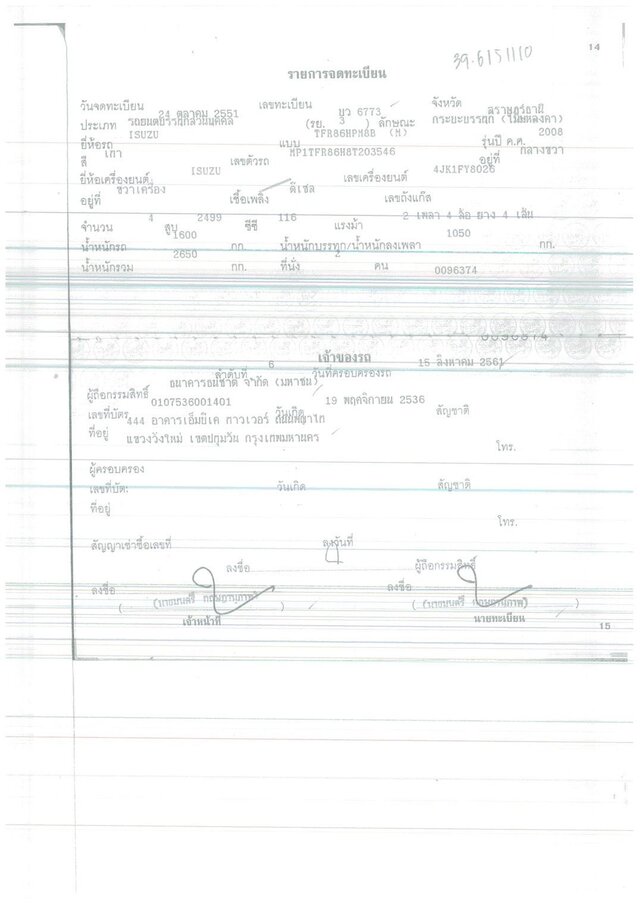 39-6151110
14
รายการจดทะเบียน
วันจดทะเบียน 24 ตุลาคม 2551 เลขทะเบียน บว 6773 จังหวัด สุราษฎร์ธานี
ประเภท รถยนต์บรรทุกส่วนบุคคล (รย. 3 ) ลักษณะ กระบะบรรทุก (ไม่มีหลังคา)
ยี่ห้อรถ ISUZU แบบ TFR86HPM8B (M) รุ่นปี ค.ศ. 2008
สี เทา เลขตัวรถ MP1TFR86H8T203546 อยู่ที่ กลางขวา
ยี่ห้อเครื่องยนต์ ISUZU เลขเครื่องยนต์ 4JK1FY8026
อยู่ที่ ขวาเครื่อง เชื้อเพลิง ดีเซล เลขถังแก๊ส
จำนวน 4 สูบ 2499 ซีซี 116 แรงม้า 2 เพลา 4 ล้อ ยาง 4 เส้น
น้ำหนักรถ 1600 กก. น้ำหนักบรรทุก/น้ำหนักลงเพลา 1050 กก.
น้ำหนักรวม 2650 กก. ที่นั่ง 2 คน 0096374
0096374
เจ้าของรถ
ลำดับที่ 6 วันที่ครอบครองรถ 15 สิงหาคม 2561
ผู้ถือกรรมสิทธิ์ ธนาคารธนชาต จำกัด (มหาชน)
เลขที่บัตร 0107536001401 วันเกิด 19 พฤศจิกายน 2536 สัญชาติ
ที่อยู่ 444 อาคารเอ็มบีเค ทาวเวอร์ ถนนพญาไท
แขวงวังใหม่ เขตปทุมวัน กรุงเทพมหานคร
โทร.
ผู้ครอบครอง
เลขที่บัตร วันเกิด สัญชาติ
ที่อยู่
โทร.
สัญญาเช่าซื้อเลขที่ ลงวันที่
ลงชื่อ ผู้ถือกรรมสิทธิ์
ลงชื่อ ลงชื่อ
เจ้าหน้าที่ นายทะเบียน
15